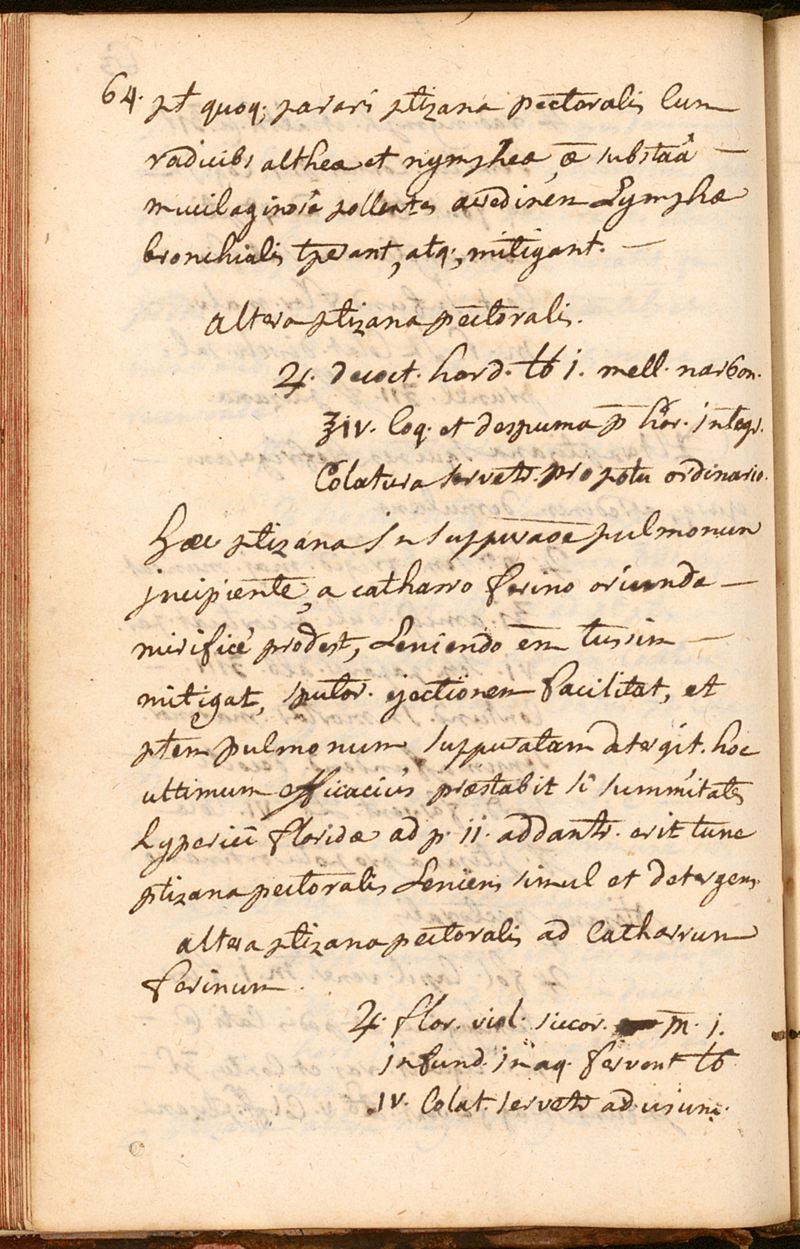 64. pt quoq; parari ptizana pectoralis cum
radicibs altheæ et nympheæ, æ substāā
mucilaginosâ pollentes acredinem Lymphæ
bronchialis tperant, atq; mitigant.
altera ptizana pectoralis.
♃. decoct. hord. ℔ j. mell. narbon.
℥iv. coq. et despuma p hor. integr.
Colatura servetr. pro potu ordinario.
hæc ptizana in suppuraōe pulmonum
jncipiente, a catharro ferino oriunda
mirificè prodest, Leniendo em tussim
mitigat, sputor. ejectionem facilitat, et
ptem pulmonum suppuratam detergit. hoc
ultimum efficaciùs præstabit si summitates
hyperici floridæ ad p. ii. addantr. erit tunc
ptizana pectoralis Leniens simul et detergens
altera ptizana pectoralis ad Catharrum
ferinum.
♃. flor. viol. siccor. m. j.
infund. in aq. fervent ℔
iv. Colat. servetr ad usum.